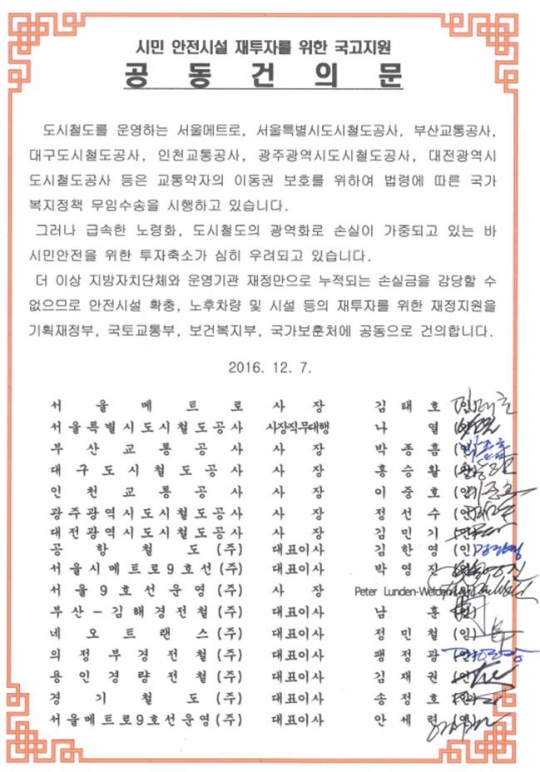 시민 안전시설 재투자를 위한 국고지원
공 동 건 의 문
도시철도를 운영하는 서울메트로, 서울특별시도시철도공사, 부산교통공사,
대구도시철도공사, 인천교통공사, 광주광역시도시철도공사, 대전광역시
도시철도공사 등은 교통약자의 이동권 보호를 위하여 법령에 따른 국가
복지정책 무임수송을 시행하고 있습니다.
그러나 급속한 노령화, 도시철도의 광역화로 손실이 가중되고 있는 바
시민안전을 위한 투자축소가 심히 우려되고 있습니다.
더 이상 지방자치단체와 운영기관 재정만으로 누적되는 손실금을 감당할 수
없으므로 안전시설 확충, 노후차량 및 시설 등의 재투자를 위한 재정지원을
기획재정부, 국토교통부, 보건복지부, 국가보훈처에 공동으로 건의합니다.
2016. 12. 7.
서 울 메 트 로 사 장 김 태 호
서울특별시도시철도공사 사장직무대행 나 열
부 산 교 통 공 사 사 장 박 종 흠 (인)
대 구 도 시 철 도 공 사 사 장 홍 승 활
인 천 교 통 공 사 사 장 이 중 호 (인)
광주광역시도시철도공사 사 장 정 선 수 (인)
대전광역시도시철도공사 사 장 김 민 기
공 항 철 도 (주) 대표이사 김 한 영 (인)
서울시메트로9호선(주) 대표이사 박 영
서 울 9 호 선 운 영 (주) 사 장 Peter Lunden-
부 산 – 김 해 경 전 철 (주) 대표이사 남
네 오 트 랜 스 (주) 대표이사 정 민 철 (인)
의 정 부 경 전 철 (주) 대표이사 팽 정 광
용 인 경 량 전 철 (주) 대표이사 김 재 권
경 기 철 도 (주) 대표이사 송 정 호
서울메트로9호선운영(주) 대표이사 안 세